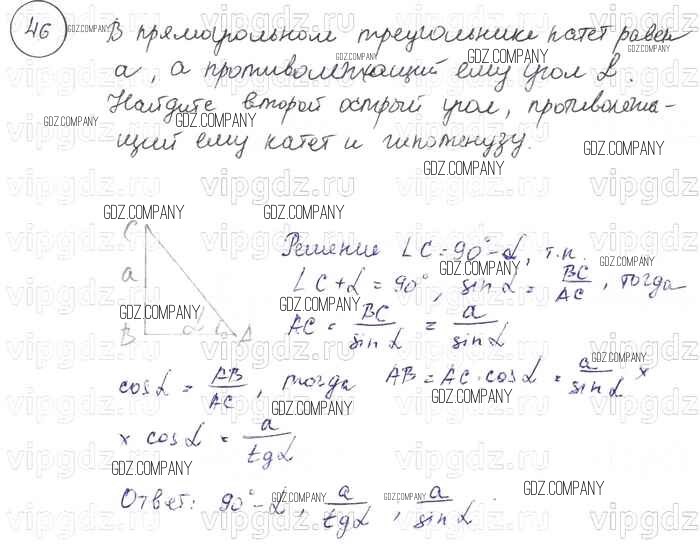 46 В прямоугольном треугольнике катет равен
а, а противолежащий ему угол L.
Найдите второй острый угол, противолежа-
щий ему катет и гипотенузу.
Решение ∠C = 90° - α, т.к.
∠C + α = 90°, sin α = BC/AC, тогда
AC = BC/sin α = a/sin α
C
a
B α A
cos α = AB/AC, тогда AB = AC · cos α = a/sin α ×
× cos α = a/tg α
Ответ: 90° - α, a/tg α, a/sin α.
GDZ.COMPANY
vipgdz.ru